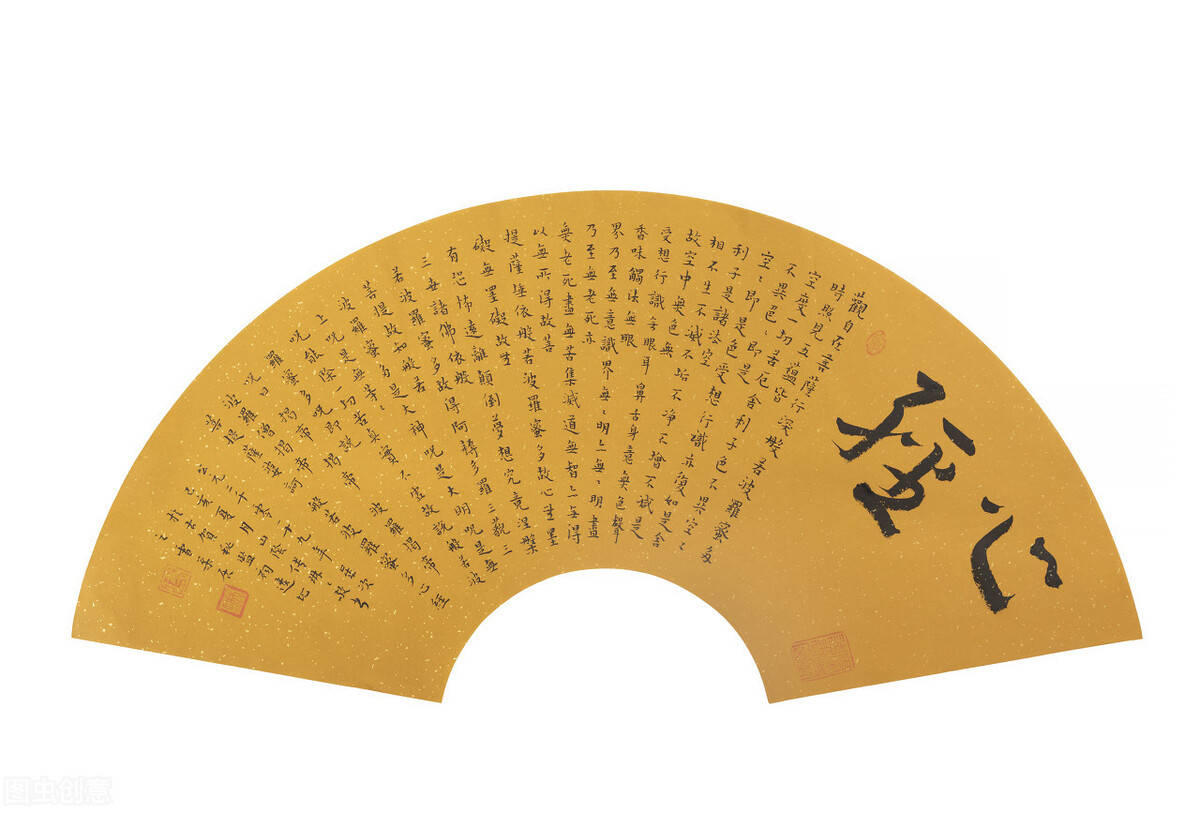 心經
觀自在菩薩行深般若波羅蜜多
時照見五蘊皆
空度一切苦厄舍利子色不異空ミ
不異色ミ即是
空ミ即是色受想行識亦復如是舍
利子是諸法空
相不生不滅不垢不淨不增不減是
故空中無色無
受想行識無眼耳鼻舌身意無色聲
香味觸法無眼
界乃至無意識界無ミ明亦無ミ明盡
乃至無老死亦
無老死盡無苦集滅道無智亦無得
以無所得故菩
提薩埵依般若波羅蜜多故心無罣
礙無罣礙故無
有恐怖遠離顛倒夢想究竟涅槃三
世諸佛依般
若波羅蜜多故得阿耨多羅三藐三
菩提故知般若
波羅蜜多是大神咒是大明咒是無
上咒是無等ミ
咒能除一切苦真實不虛故說般若波
羅蜜多咒即說
咒曰揭帝揭帝般羅揭帝
波羅僧揭帝
菩提薩婆訶般若波羅蜜多心經
公元二千零一十九年歲次
己亥夏月山陰
图虫创意